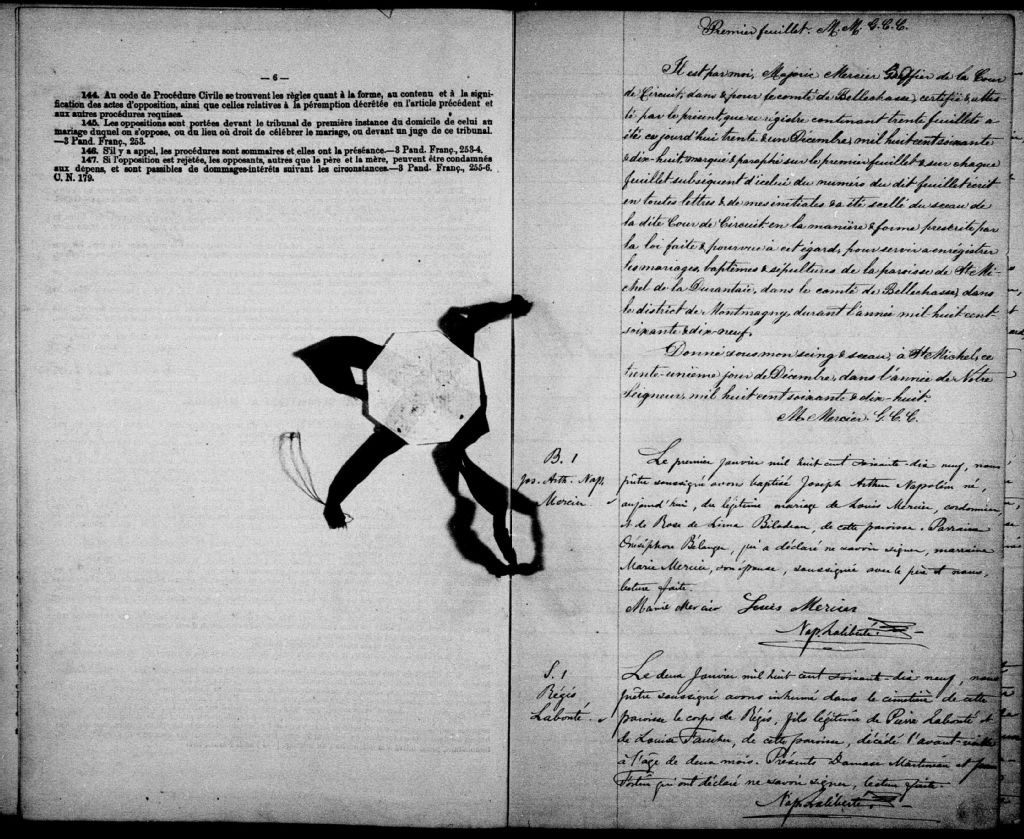 — 6 —
144. Au code de Procédure Civile se trouvent les règles quant à la forme, au contenu et à la signi-
fication des actes d'opposition, ainsi que celles relatives à la péremption décrétée en l'article précédent et
aux autres procédures requises.
145. Les oppositions sont portées devant le tribunal de première instance du domicile de celui au
mariage duquel on s'oppose, ou du lieu où droit de célébrer le mariage, ou devant un juge de ce tribunal.
—3 Pand. Franç., 253.
146. S'il y a appel, les procédures sont sommaires et elles ont la préséance.—3 Pand. Franç., 253-4.
147. Si l'opposition est rejetée, les opposants, autres que le père et la mère, peuvent être condamnés
aux dépens, et sont passibles de dommages-intérêts suivant les circonstances.—3 Pand. Franç., 255-6.
C. N. 179.
Premier feuillet. M. M. G. C. C.
Il est par moi, Majoric Mercier Greffier de la Cour
de Circuit, dans & pour le comté de Bellechasse, certifié & attes-
té par le présent que ce registre contenant trente feuillets a
été ce jourd'hui trente & un Décembre, mil huit cent soixante
& dix-huit marqué & paraphé sur le premier feuillet & sur chaque
feuillet subséquent d'icelui du numéro du dit feuillet écrit
en toutes lettres & de mes initiales & a été scellé du sceau de
la dite Cour de Circuit en la manière & forme prescrite par
la loi faite & pourvue à cet égard, pour servir à enrégistrer
les mariages, baptêmes & sépultures de la paroisse de St. Mi-
chel de la Durantaie, dans le comté de Bellechasse, dans
le district de Montmagny, durant l'année mil huit cent
soixante & dix-neuf.
Donné sous mon seing & sceau, à St. Michel, ce
trente-unième jour de Décembre, dans l'année de Notre
Seigneur, mil huit cent soixante & dix-huit.
M. Mercier G. C. C.
B. 1
Jos. Arth. Nap.
Mercier
Le premier Janvier mil huit cent soixante-dix neuf, nous
prêtre soussigné avons baptisé Joseph Arthur Napoléon né,
aujourd'hui, du légitime mariage de Louis Mercier, cordonnier,
et de Rose de Lima Bilodeau, de cette paroisse. Parrain
Onésiphore Bélanger, qui a déclaré ne savoir signer, marraine
Marie Mercier, son épouse, soussignée avec le père et nous,
lecture faite.
Marie Mercier Louis Mercier
Nap. Laliberté
S. 1
Régis
Labonté
Le deux Janvier mil huit cent soixante-dix neuf, nous
prêtre soussigné avons inhumé dans le cimetière de cette
paroisse le corps de Régis, fils légitime de Pierre Labonté et
de Louise Faucher, de cette paroisse, décédé l'avant-veille
à l'âge de deux mois. Présents Damase Martineau et
Fortin qui ont déclaré ne savoir signer, lecture faite.
Nap. Laliberté